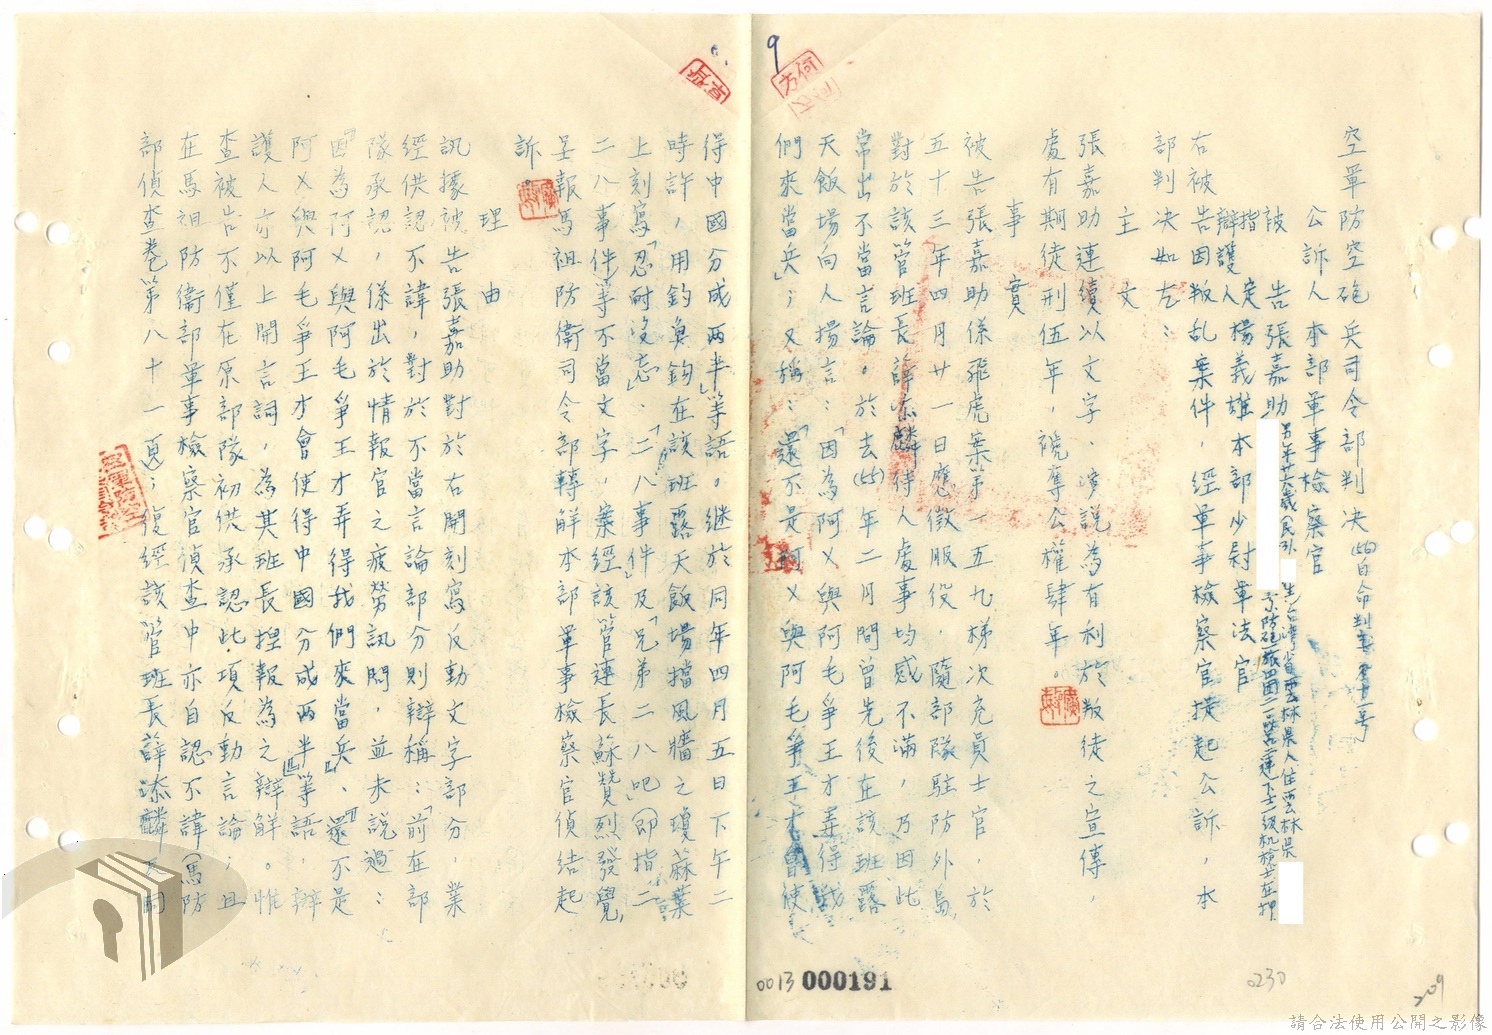 9
空軍防空砲兵司令部判決(54)自命判字
公訴人本部軍事檢察官
被告張嘉助 男年廿六歲民外 生台灣省雲林縣人住雲林縣
下士一級机槍士在押
指定辯護人楊義雄本部少尉軍法官
右被告因叛乱案件，經軍事檢察官提起公訴，本
部判決如左：
主文
張嘉助連續以文字、演說為有利於叛徒之宣傳，
處有期徒刑伍年，褫奪公權肆年。
事實
被告張嘉助係飛虎案第一五九梯次充員士官，於
五十三年四月廿一日應徵服役，隨部隊駐防外島
對於該管班長薛添麟待人處事均感不滿，乃因此
常出不當言論。於去(54)年二月間曾先後在該班露
天飯場向人揚言：「因為阿ㄨ與阿毛爭王才弄得我
們來當兵」；又稱：「還不是阿ㄨ與阿毛爭王才會使
得中國分成兩半」等語。继於同年四月五日下午二
時許，用釣魚鈎在該班露天飯場擋風牆之瓊蔴葉
上刻寫「忍耐沒忘」、「二八事件」及「兄弟二八吧」（即指二
二八事件）等不當文字，案經該管連長蘇贊烈發覺，
呈報馬祖防衛司令部轉解本部軍事檢察官偵結起
訴。
理由
訊據被告張嘉助對於右開刻寫反動文字部分，業
經供認不諱，對於不當言論部分則辯稱：「前在部
隊承認，係出於情報官之疲勞訊問，並未說過：
『因為阿ㄨ與阿毛爭王才弄得我們來當兵』、『還不是
阿ㄨ與阿毛爭王才會使得中國分成兩半』」等語，辯
護人亦以上開言詞，為其班長揑報為之辯解。惟
查被告不僅在原部隊初供承認此項反動言論，且
在馬祖防衛部軍事檢察官偵查中亦自認不諱（馬防
部偵查卷第八十一頁）；復經該管班長薛添麟
0013 000191
0230
209
請合法使用公開之影像